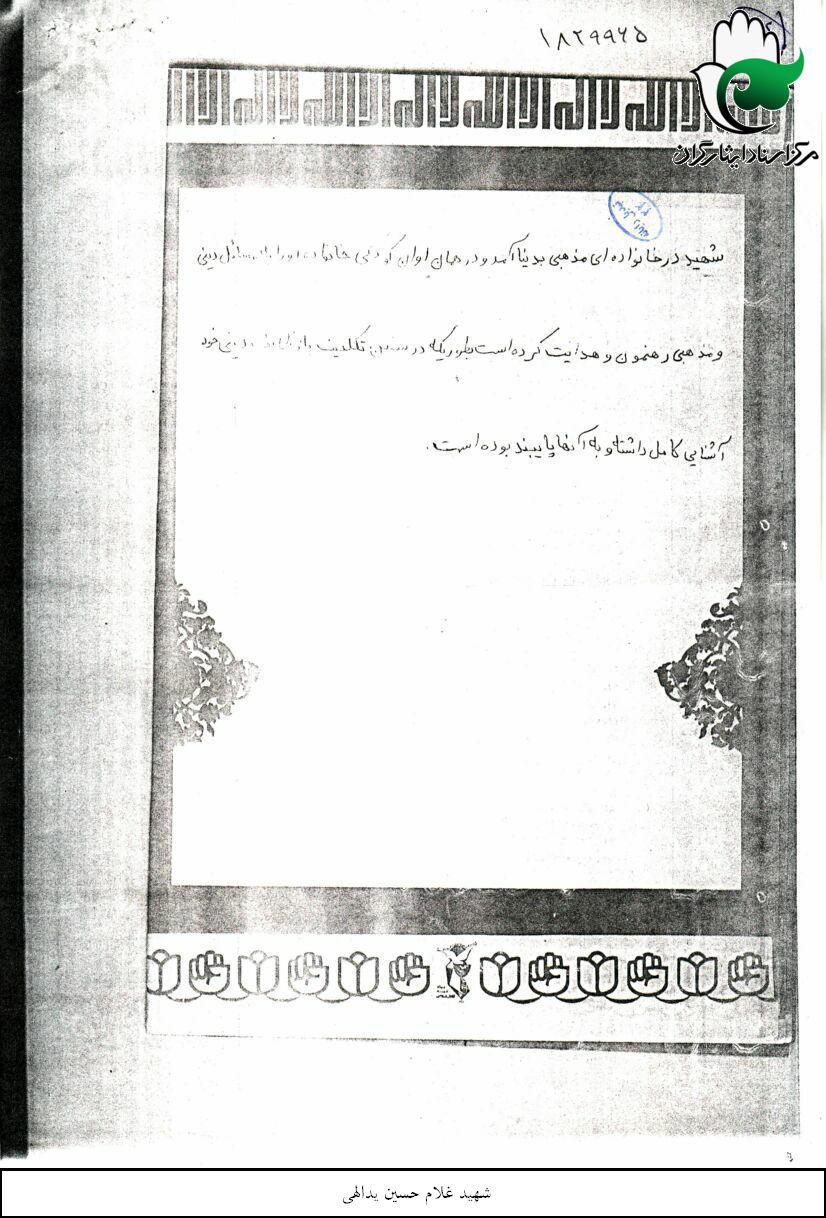 ۱۸۲۹۹۶۵
مرکز اسناد ایثارگران
لا اله الا الله لا اله الا الله لا اله الا
شهید در خانواده ای مذهبی بدنیا آمد و در همان اوان کودکی خانواده او را با مسائل دینی
و مذهبی رهنمون و هدایت کرده است بطوریکه در سنین تکلیف با دینی خود
آشنایی کامل داشته و به آنها پایبند بوده است.
شهید غلام حسین یدالهی